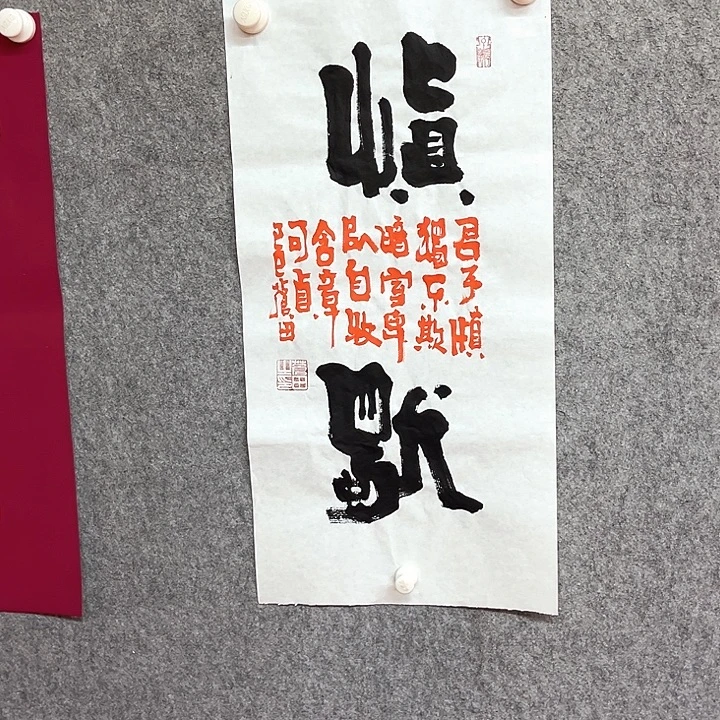 慎
獨
君子慎
獨不欺
暗室卑
以自牧
含章
可貞